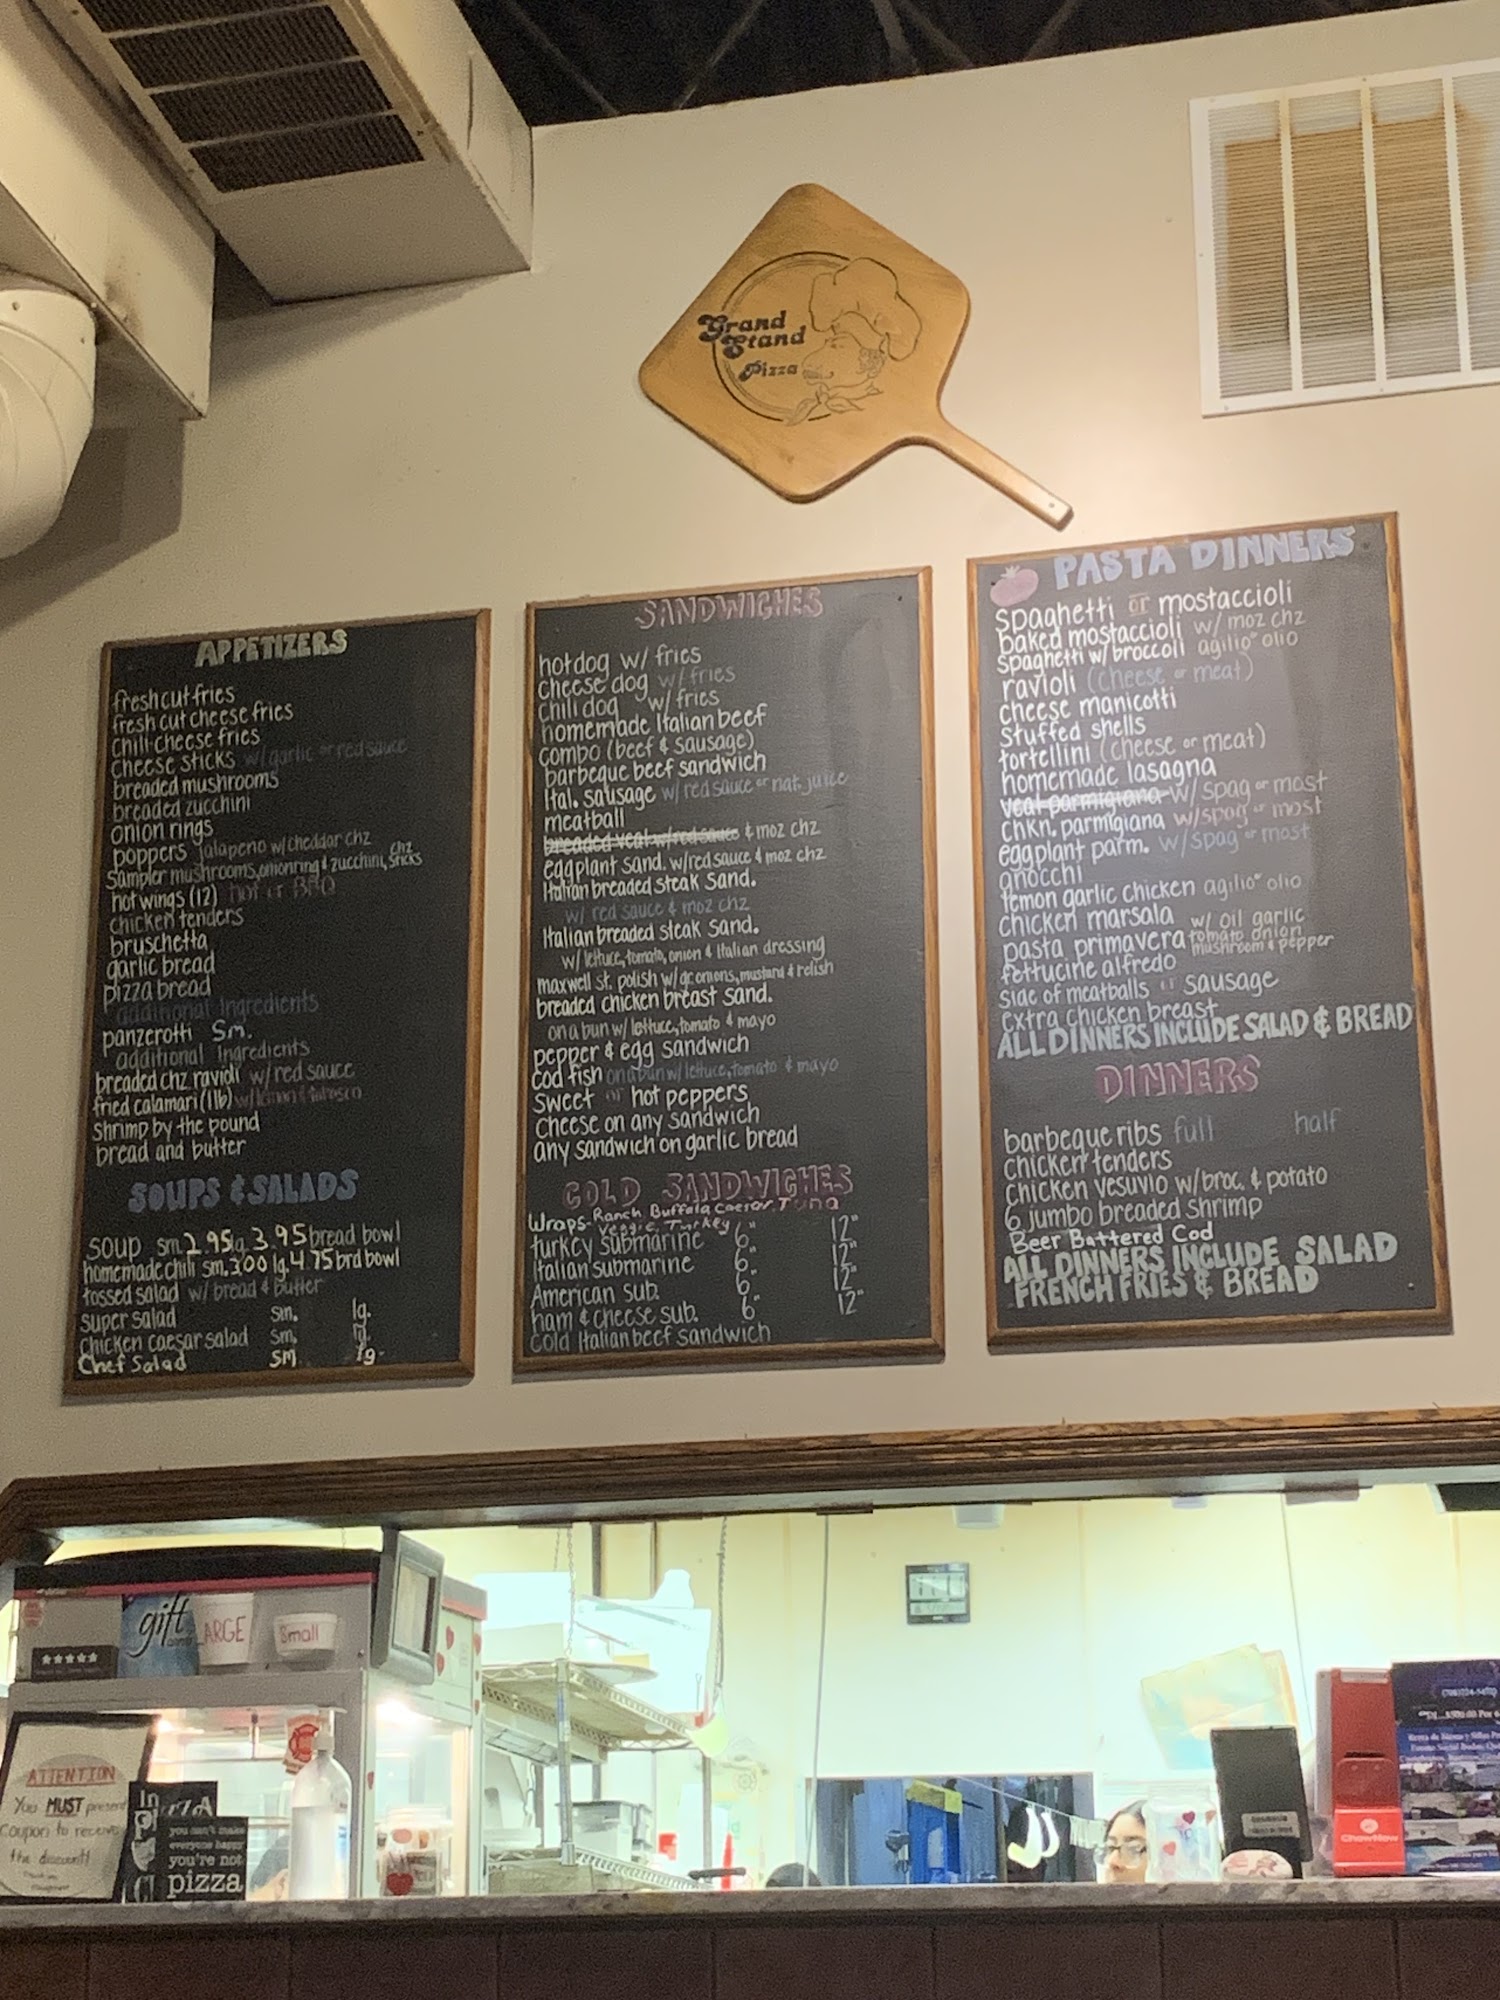 Grand
Stand
Pizza
APPETIZERS
fresh cut fries
fresh cut cheese fries
chili cheese fries
cheese sticks w/garlic or red sauce
breaded mushrooms
breaded zucchini
onion rings
poppers jalapeno w/cheddar chz
sampler mushrooms, onion ring & zucchini, chz sticks
hot wings (12) hot or BBQ
chicken tenders
bruschetta
garlic bread
pizza bread
additional Ingredients
panzerotti Sm.
additional Ingredients
breaded chz ravioli w/ red sauce
fried calamari (1lb) w/lemon & tabasco
shrimp by the pound
bread and butter
SOUPS & SALADS
soup sm 2.95 lg 3.95 bread bowl
homemade chili sm. 3.00 lg. 4.75 brd bowl
tossed salad w/ bread & butter
super salad sm. lg.
chicken caesar salad sm. lg.
Chef Salad sm lg.
SANDWICHES
hotdog w/ fries
cheese dog w/ fries
chili dog w/ fries
homemade Italian beef
combo (beef & sausage)
barbeque beef sandwich
Ital. sausage w/ red sauce or nat. juice
meatball
breaded veal w/red sauce & moz chz
eggplant sand. w/red sauce & moz chz
Italian breaded steak sand.
w/ red sauce & moz chz
Italian breaded steak sand.
w/ lettuce, tomato, onion & Italian dressing
maxwell st. polish w/ gr. onions, mustard & relish
breaded chicken breast sand.
on a bun w/ lettuce, tomato & mayo
pepper & egg sandwich
cod fish on a bun w/ lettuce, tomato & mayo
sweet or hot peppers
cheese on any sandwich
any sandwich on garlic bread
COLD SANDWICHES
Wraps- Ranch Buffalo Caesar, Tuna
Veggie, Turkey
turkey submarine 6" 12"
Italian submarine 6" 12"
American sub. 6" 12"
ham & cheese sub. 6" 12"
cold Italian beef sandwich
PASTA DINNERS
spaghetti or mostaccioli
baked mostaccioli w/ moz chz
spaghetti w/ broccoli agilio" olio
ravioli (cheese or meat)
cheese manicotti
stuffed shells
tortellini (cheese or meat)
homemade lasagna
veal parmigiana w/ spag or most
chkn. parmigiana w/spag or most
eggplant parm. w/spag or most
gnocchi
lemon garlic chicken agilio" olio
chicken marsala
pasta primavera w/ oil garlic
tomato onion
mushroom & pepper
fettucine alfredo
side of meatballs or sausage
extra chicken breast
ALL DINNERS INCLUDE SALAD & BREAD
DINNERS
barbeque ribs full half
chicken tenders
chicken vesuvio w/broc. & potato
6 jumbo breaded shrimp
Beer Battered Cod
ALL DINNERS INCLUDE SALAD
FRENCH FRIES & BREAD
gift
LARGE
Small
ATTENTION
You MUST present
Coupon to receive
the discount!
you can't make
everyone happy
you're not
pizza
ChowNow